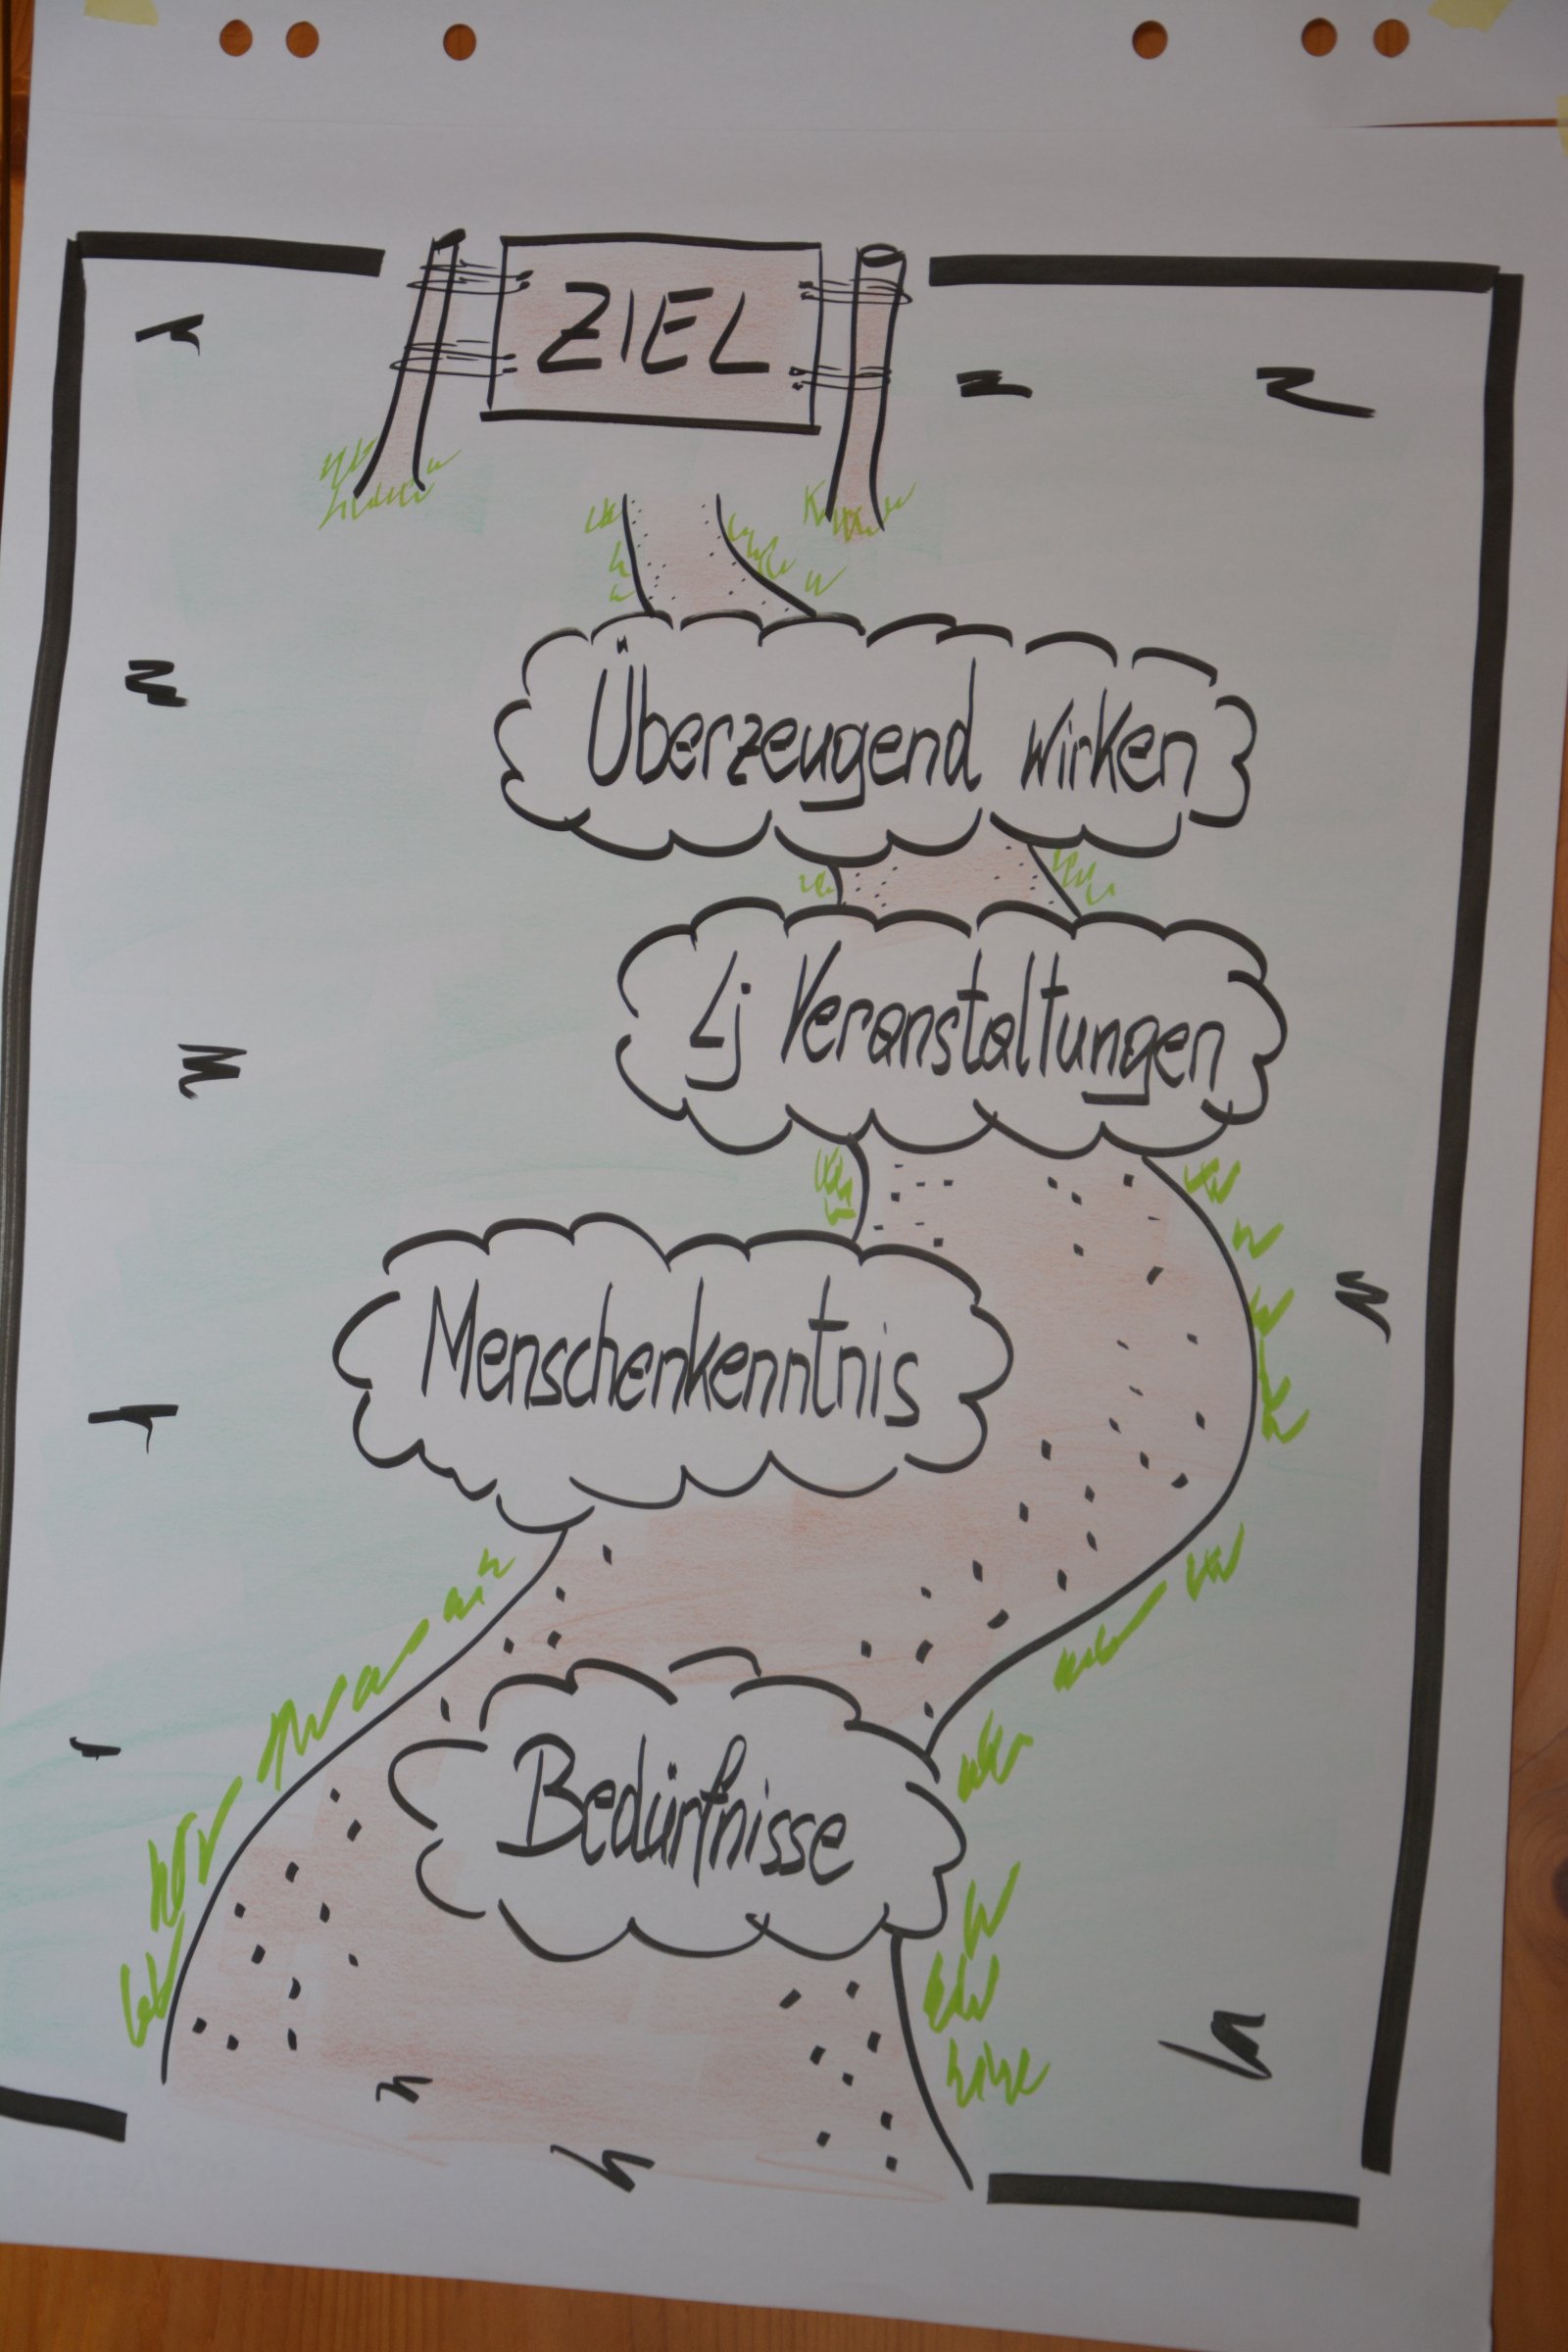 ZIEL
Überzeugend wirken
Lj Veranstaltungen
Menschenkenntnis
Bedürfnisse